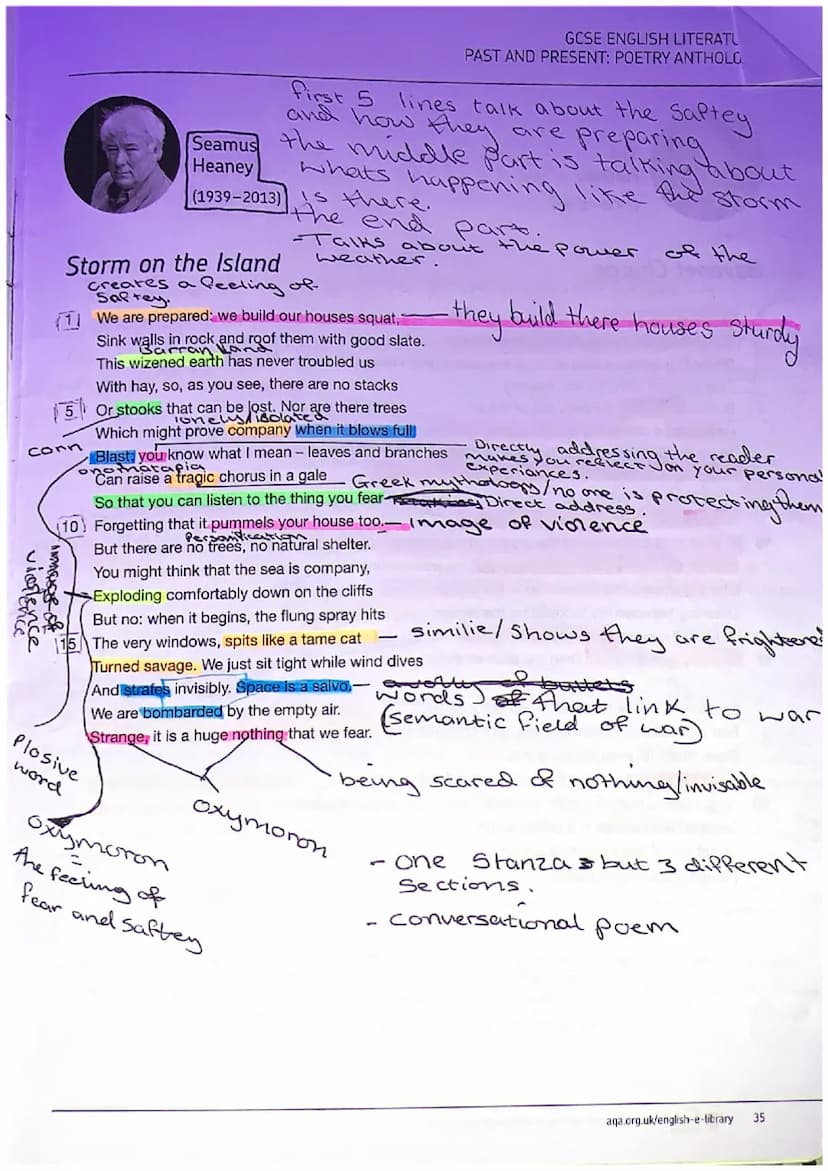 GCSE ENGLISH LITERATU
PAST AND PRESENT: POETRY ANTHOLO
first 5 lines talk about the Saftey
and how they are preparing
the middle part is talking about
whats happening like the storm
is there.
the end part.
-Talks about the power of the
weather.
Seamus
Heaney
(1939–2013)
Storm on the Island
creates a feeling of
Saftey.
1 We are prepared: we build our houses squat, they build there houses sturdy
Sink walls in rock and roof them with good slate.
Barran land
This wizened earth has never troubled us
With hay, so, as you see, there are no stacks
5 Or stooks that can be lost. Nor are there trees
lonely/isolated
Which might prove company when it blows full
corn
Blast: you know what I mean – leaves and branches
Directly addressing the reader
makes you reflect on your personal
experiances.
onomatapia
Can raise a tragic chorus in a gale Greek mythology/no one is protecting them
So that you can listen to the thing you fear Direct address.
10 Forgetting that it pummels your house too. – image of violence
Personification
But there are no trees, no natural shelter.
You might think that the sea is company,
Exploding comfortably down on the cliffs
image of
violence
But no: when it begins, the flung spray hits
15 The very windows, spits like a tame cat – similie/shows they are frightened
Turned savage. We just sit tight while wind dives
And strafes invisibly. Space is a salvo, – a volley of bullets
words of that link to war
We are bombarded by the empty air. (semantic field of war)
Strange, it is a huge nothing that we fear.
Plosive
word
being scared of nothing/invisable
oxymoron
oxymoron
=
the feeling of
fear and Saftey
- one Stanza but 3 different
Sections.
- conversational poem
aqa.org.uk/english-e-library 35